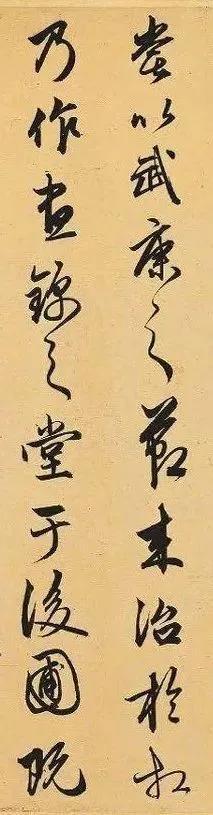 嘗以武康之節来治於相
乃作晝錦之堂于後圃既